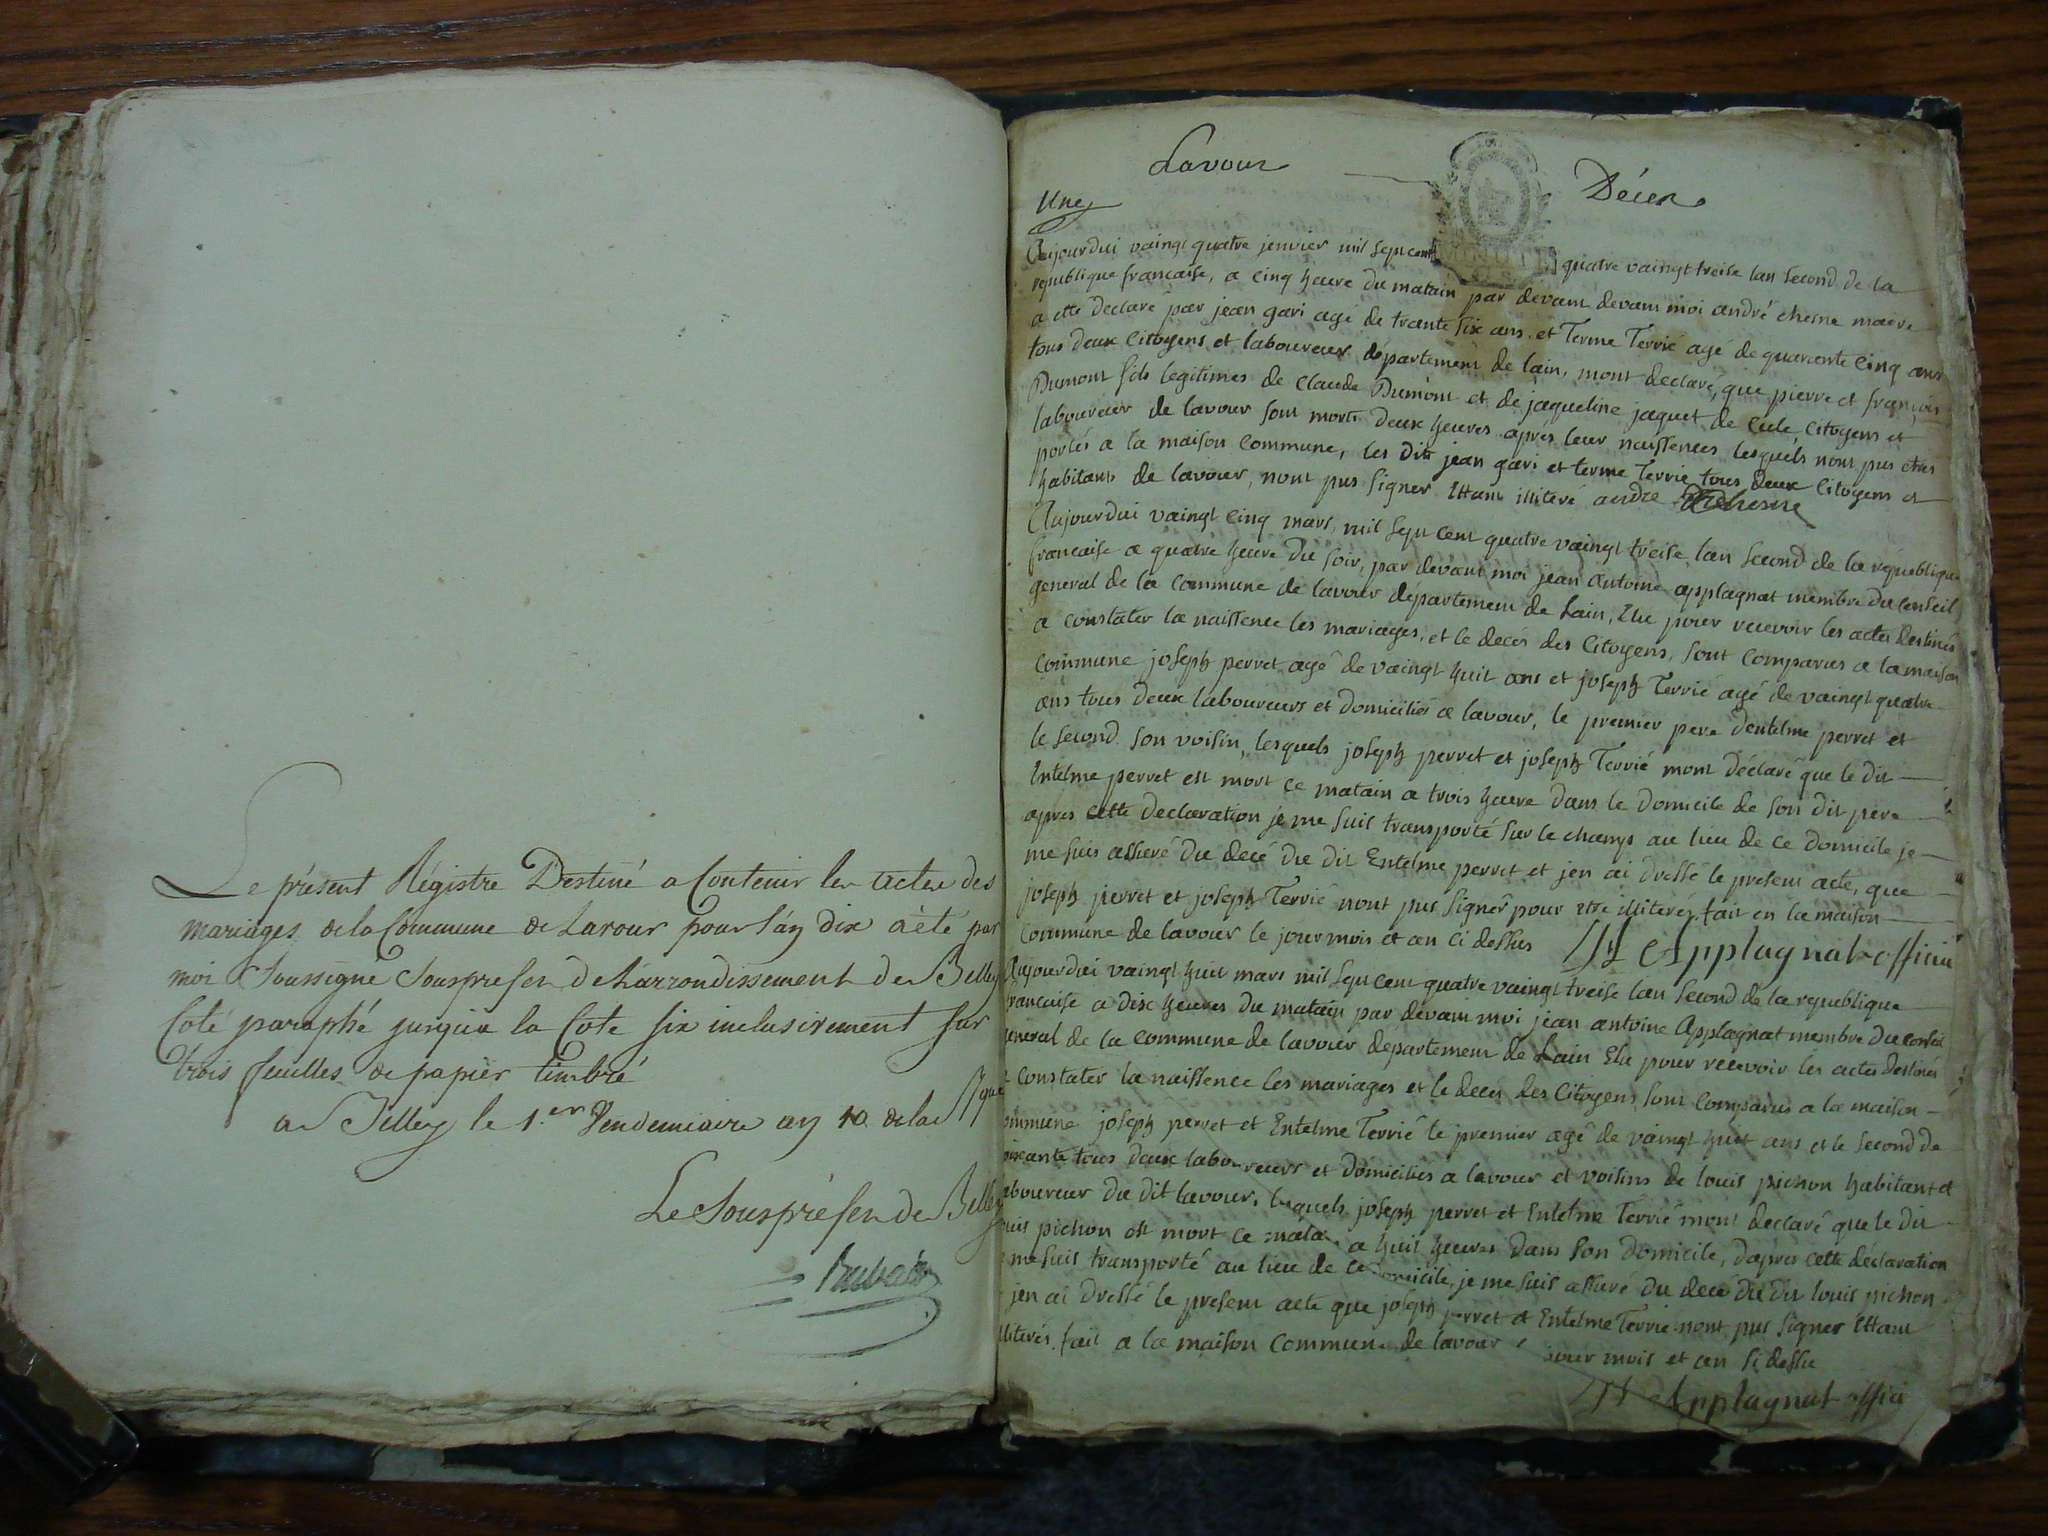 Le présent Régistre Destiné a Contenir les actes des
mariages de la Commune de Lavour pour l'an dix a été par
moi Soussigné Sousprefet de L'arrondissement de Belley
Coté paraphé jusqu'a la Cote six inclusivement sur
trois feuilles de papier timbré
a Belley le 1.er Vendemiaire an 10 de la
Le Sousprefet de Belley
Lavour Décès
Une
Aujourdui vaingt quatre jenvier mil sept cent quatre vaingt treise lan second de la
republique francaise, a cinq heure du matain par devam devam moi andré chesne maere
a ette declaré par jean gari agé de trante six ans et Terme Terrié agé de quarente cinq ans
tous deux Citoyens et laboureur département de lain, mont declaré, que pierre et françois
Dumont fils legitimes de Claude Dumont et de jaqueline jaquet de Cule Citoyens et
laboureur de lavour sont morts deux heures apres leur naissences lesquels nont pus etres
portés a la maison commune, les dits jean gari et terme Terrie tous deux Citoyens et
habitans de lavour, nont pus signer ettant illiteré andré chesne
Aujourdui vaingt cinq mars, mil sept cent quatre vaingt treise lan second de la republique
francaise a quatre heure du soir, par devant moi jean antoine applagnat membre du conseil
general de la commune de lavour département de Lain, Elu pour recevoir les actes destinés
a constater la naissence les mariages, et le deces des Citoyens, sont comparus a la maison
commune joseph perret agé de vaingt huit ans et joseph Terrié agé de vaingt quatre
ans tous deux laboureurs et domiciliés a lavour, le premier pere dentelme perret et
le second son voisin, lesquels joseph perret et joseph Terrié mont déclaré que le dit
Entelme perret est mort ce matain a trois heure dans le domicile de son dit pere
apres cette declaration je me suis transporté sur le champs au lieu de ce domicile je
me suis assuré du decé du dit Entelme perret et jen ai dressé le present acte, que
joseph perret et joseph Terrié nont pus signer pour etre illiterés fait en la maison
commune de lavour le jour mois et an ci dessus Applagnat officié
Aujourdui vaingt huit mars mil sept cent quatre vaingt treise lan second de la republique
francaise a dix heures du matain par devam moi jean antoine Applagnat membre du conseil
general de la commune de lavour département de Lain Elu pour recevoir les actes destinés
a constater la naissence les mariages et le deces des Citoyens, sont comparus a la maison
commune joseph perret et Entelme Terrié le premier agé de vaingt huit ans et le second de
soixante tous deux laboureurs et domiciliés a lavour et voisins de louis pichon habitant et
laboureur du dit lavour, lesquels joseph perret et Entelme Terrié mont declaré que le dit
louis pichon est mort ce matain a huit heures dans son domicile, dapres cette déclaration
je me suis transporté au lieu de ce domicile, je me suis assuré du decé du dit louis pichon
jen ai dressé le present acte que joseph perret et Entelme Terrie nont pus signer ettant
illiterés. fait a la maison commune de lavour jour mois et an si dessu
Applagnat offici